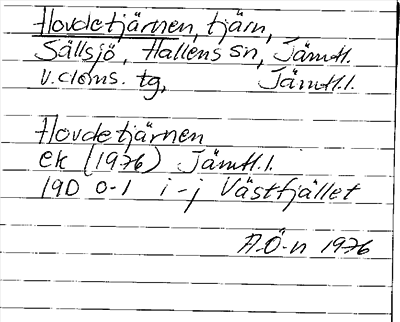 Hovdetjärnen, tjärn,
Sällsjö, Hallens sn, Jämtl.
v. doms. tg, Jämtl.l.
Hovdetjärnen
ek (1976) Jämtl.l.
19D 0-1 i-j Västfjället
A.Ö-n 1976